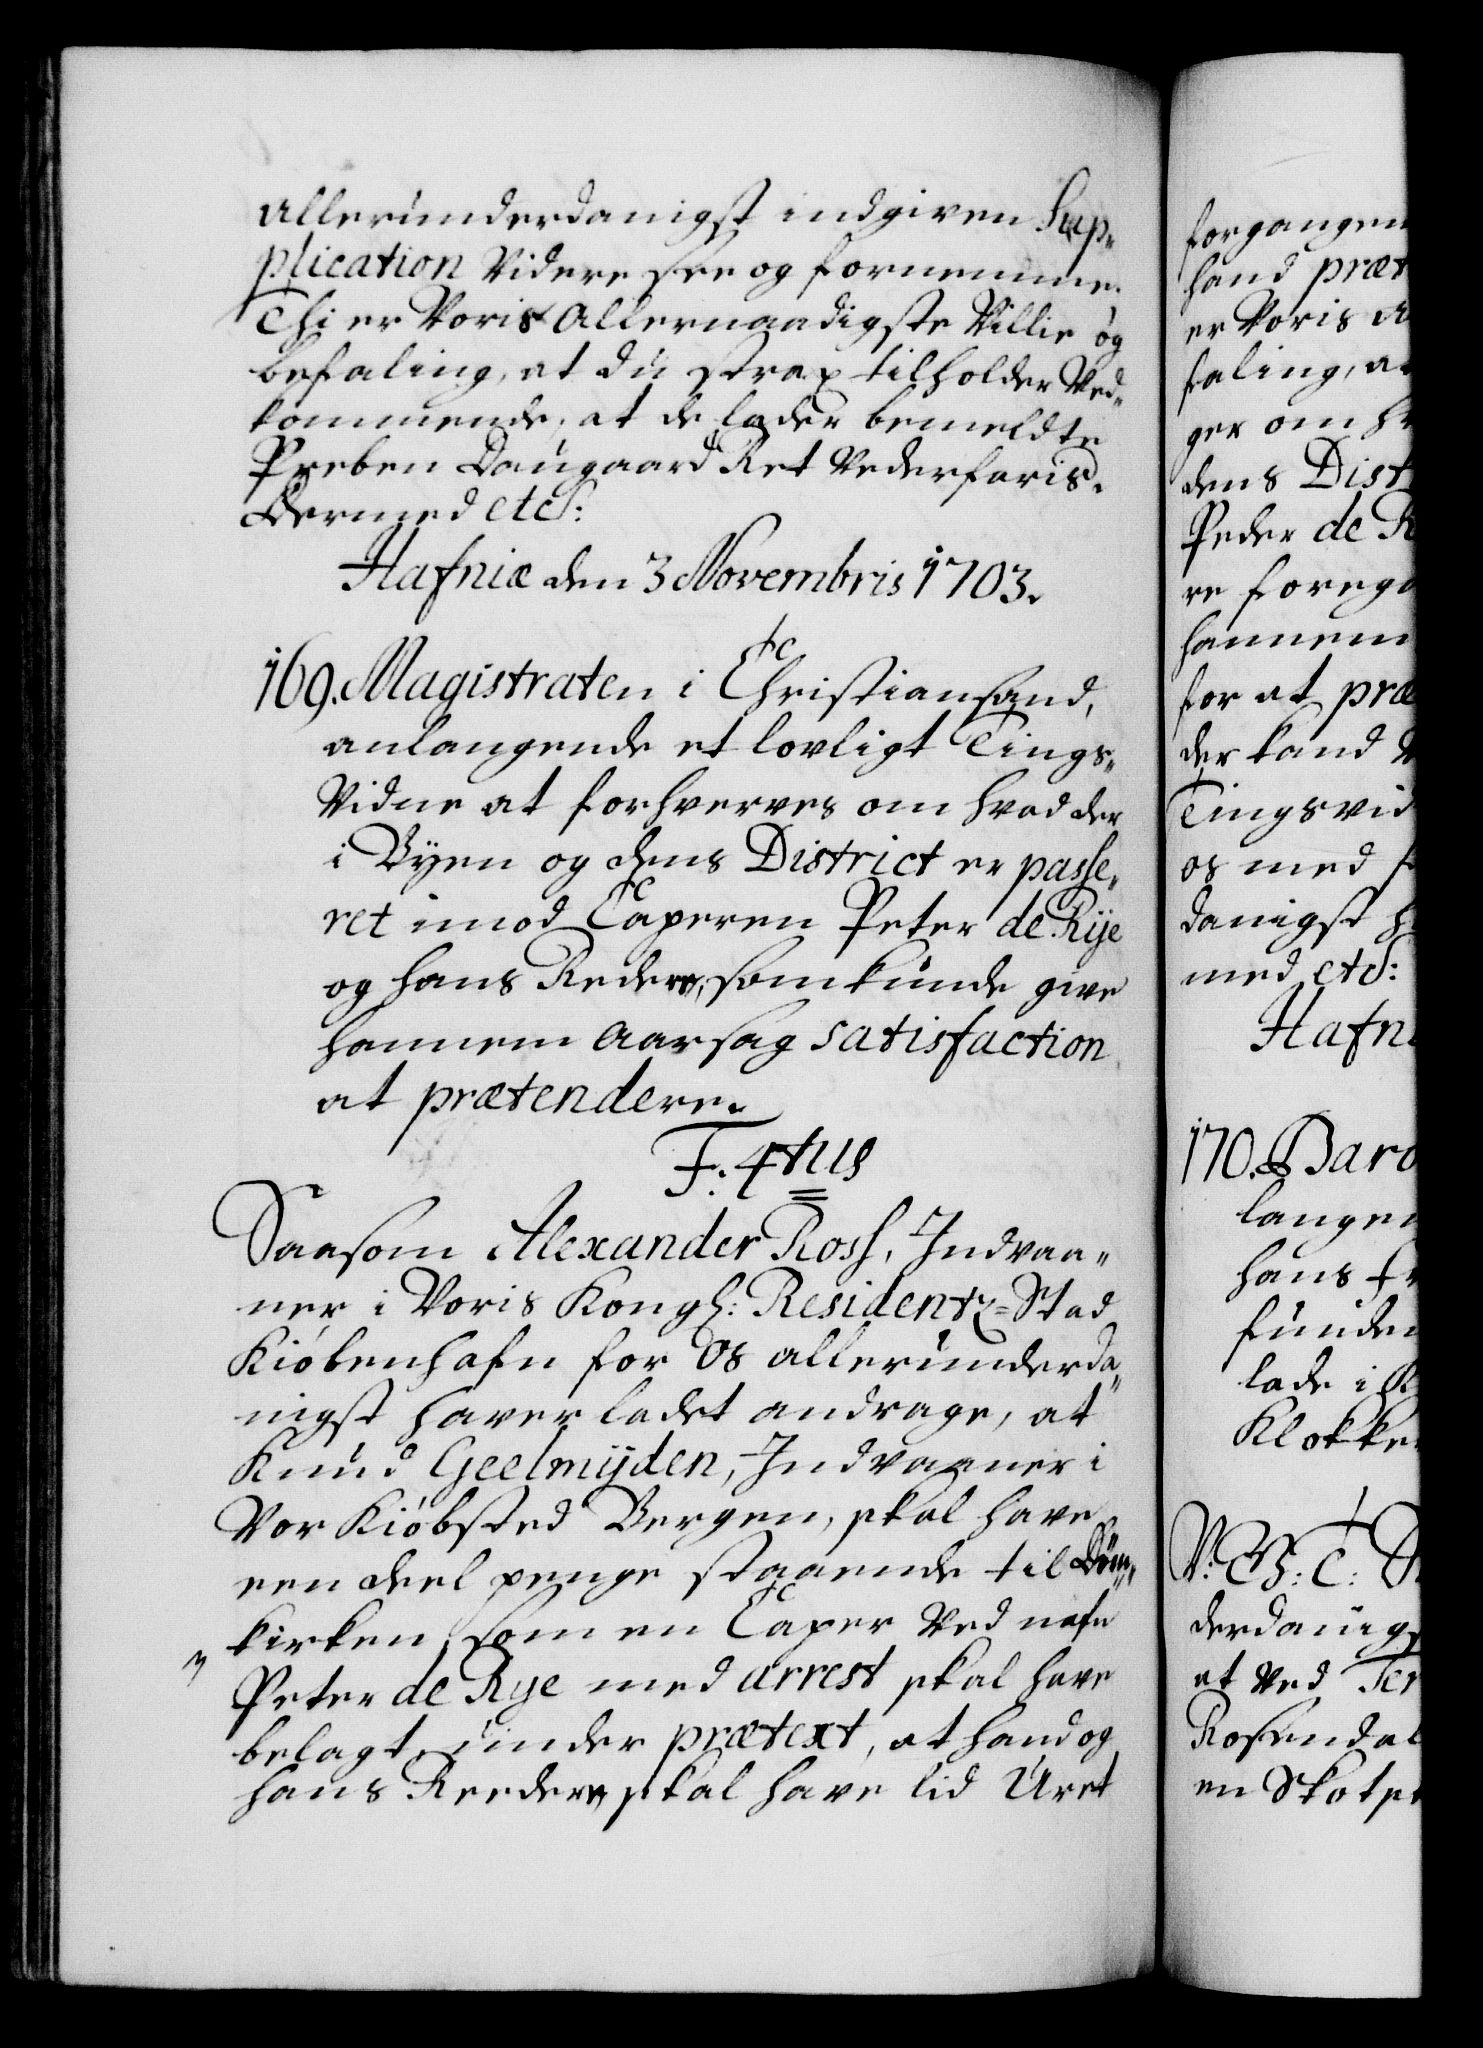 allerunderdanigst indgiven Sup„
plication Videre see og fornemme.
Thi er Voris Allernaadigste Villie og
befaling, at du strax tilholder Ved„
kommende, at de lader bemeldte
Preben Daugaard Ret Vederfaris.
Dermed etc:
Hafniæ den 3 Novembris 1703.
169. Magistraten i Christiansand,
anlangende et lovligt Tings„
Vidne at forhverves om hvad der
i Byen og dens District er passe„
ret imod Caperen Peter de Rÿe
og hans Redere, som kunde give
hannem Aarsag satisfaction
at prætendere.
F: 4tus
Saasom Alexander Ross, Indvaa„
ner i Voris Kongl: Residentz-Stad
Kiöbenhafn for Os allerunderda„
nigst haver ladet andrage, at
Knud Geelmÿden, Indvaaner i
Vor Kiöbsted Bergen, skal have
een deel penge staaende til Dom„
kirken, som en Caper Ved nafn
Peter de Rÿe med arrest skal have
belagt, under prætext, at hand og
hans Reedere skal have lid Uret
forgangen
hand præt
er Voris A
faling, at
ger om h
dens Dist
Peder de R
re forega
hannem
for at præ
der kand
Tingsvid
os med
danigst h
med etc:
Hafn
170. Baro
langen
hans fr
funden
lade i K
Klokke
V: G: T: S
derdanigs
at Ved Ter
Rosendal
en Skotsk